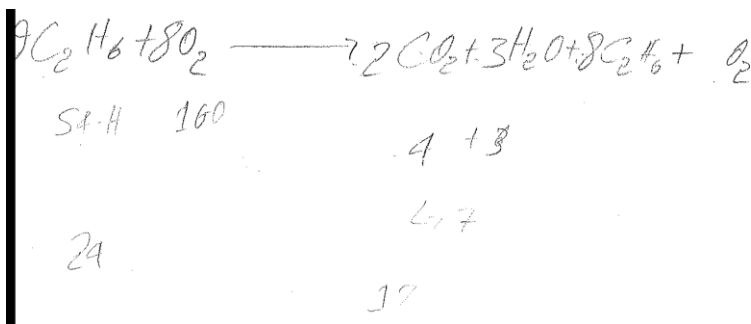 9C₂H₆+8O₂ → 2CO₂+3H₂O+8C₂H₆+ O₂
54-H 160
4 +3
24